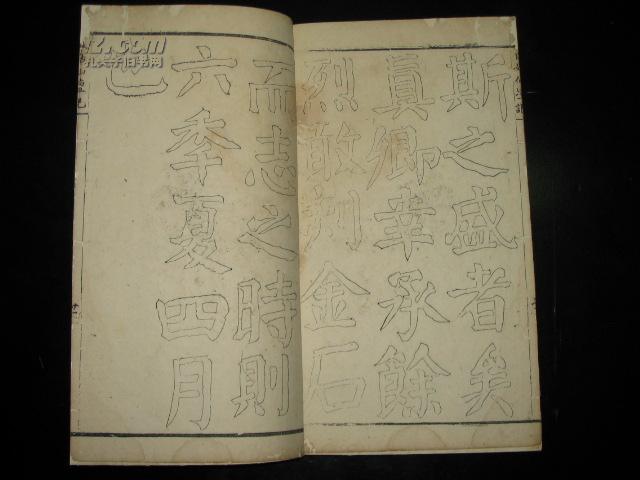 斯之盛者矣
真卿幸承餘
烈敢刋金石
而志之時則
六季夏四月
也
孔夫子旧书网